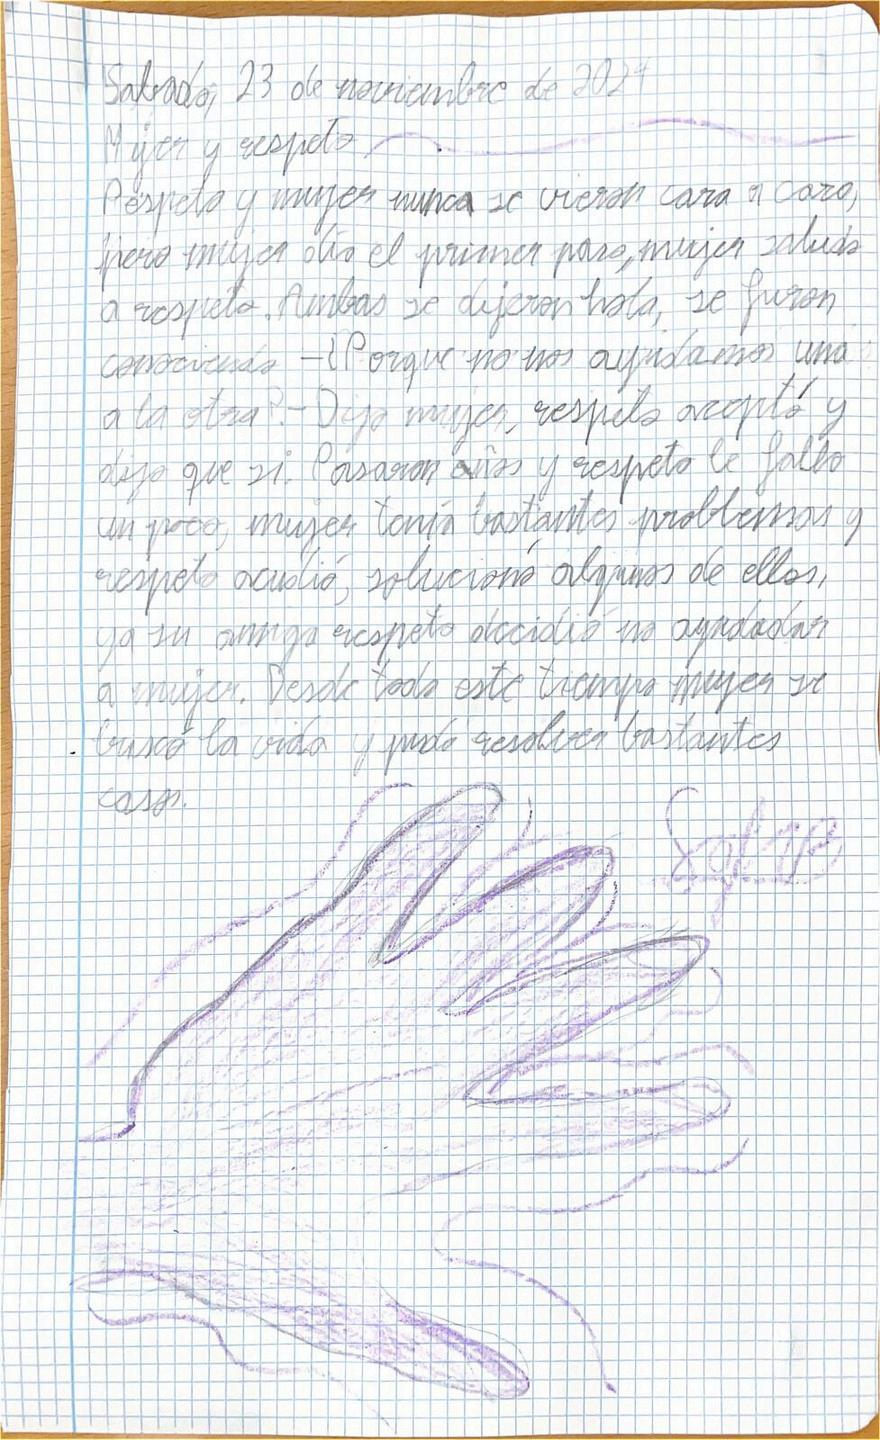 Sabado, 23 de noviembre de 2024
Mujer y respeto
Respeto y mujer nunca se vieron cara a cara,
pero mujer dio el primer paso, mujer saludo
a respeto. Ambas se dijeron hola, se furon
conociendo -¿Porque no nos ayudamos una
a la otra?- Dijo mujer, respeto aceptó y
dijo que si. Pasaron años y respeto le fallo
un poco, mujer tenia bastantes problemas y
respeto acudió, solucionó algunos de ellos,
ya su amiga respeto decidió no ayudadar
a mujer. Desde todo este tiempo mujer se
buscó la vida y pudo resolver bastantes
cosas.